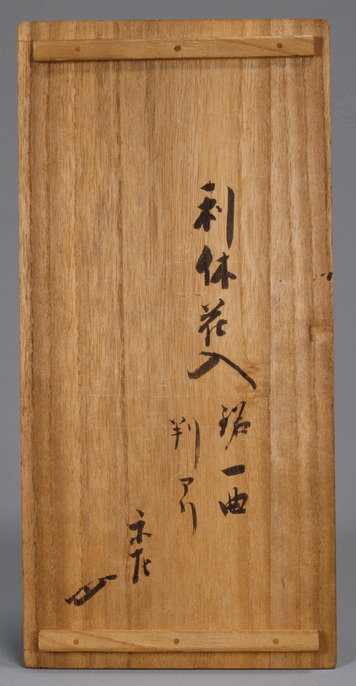 利休花入 銘一曲
判アリ
宗左